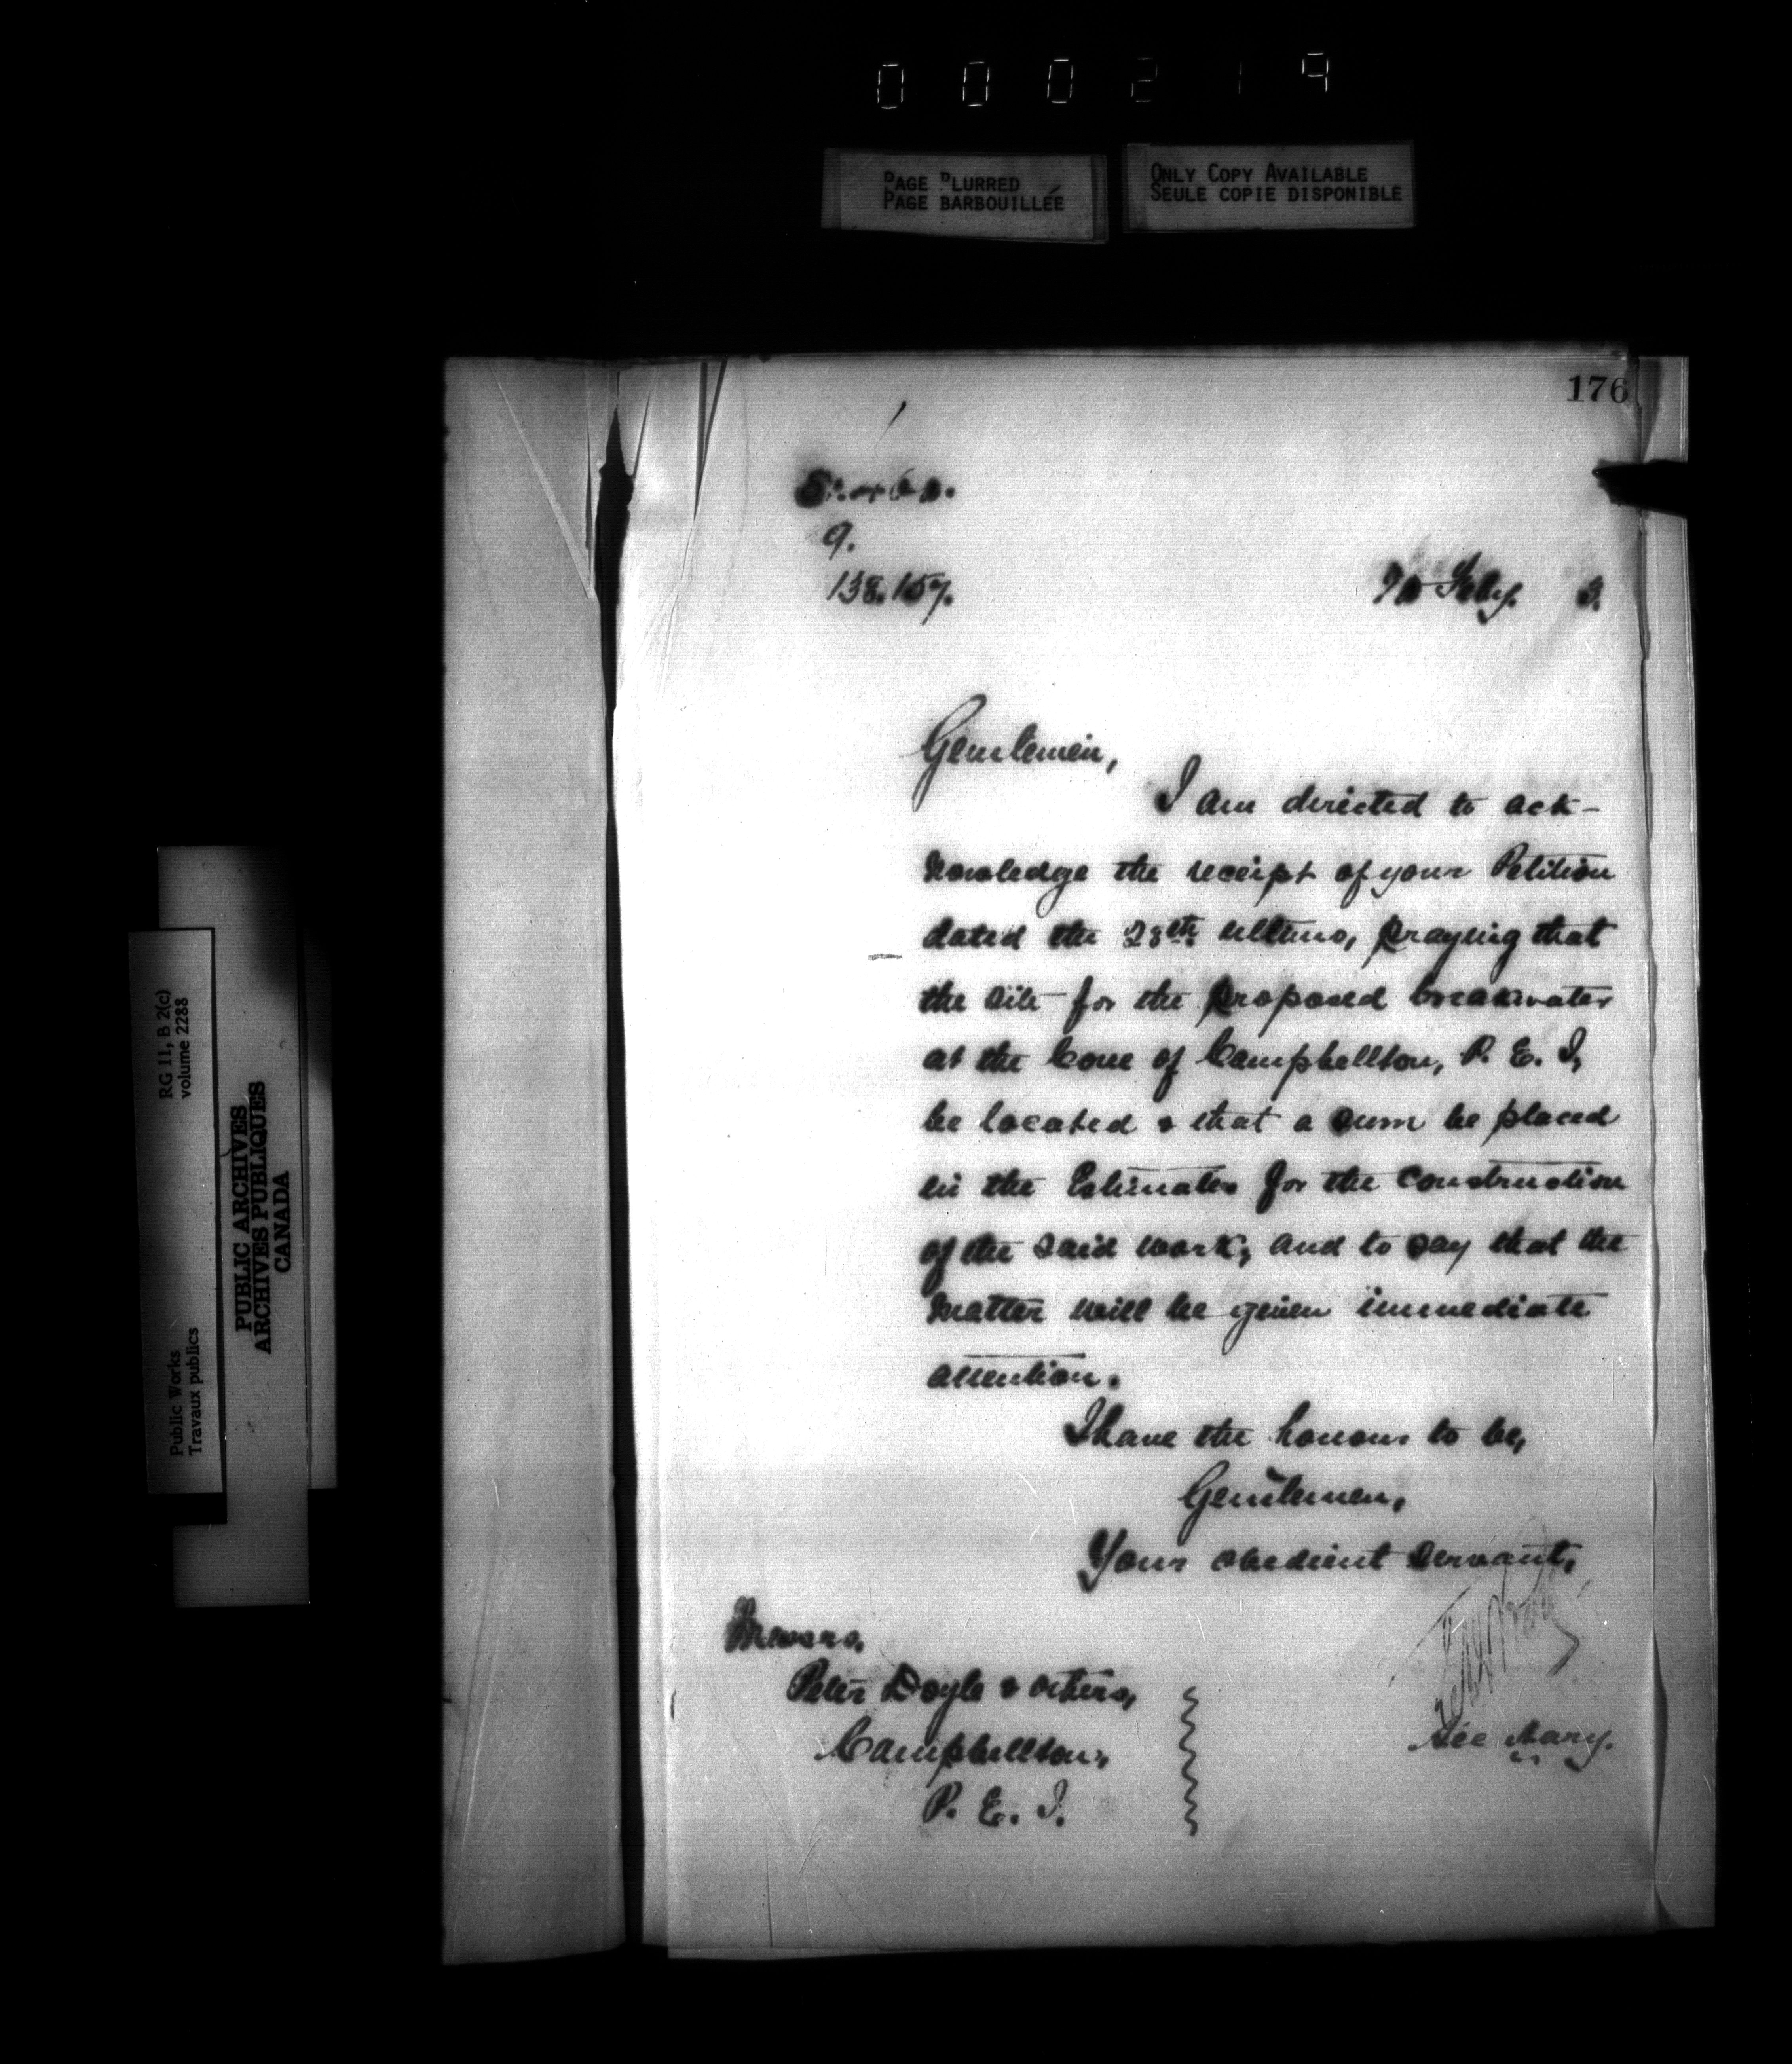 000219
PAGE BLURRED
PAGE BARBOUILLÉE
ONLY COPY AVAILABLE
SEULE COPIE DISPONIBLE
176
9.
138.157.
Feby. 3.
Gentlemen,
I am directed to ack-
nowledge the receipt of your Petition
dated the 28th ultimo, praying that
the site for the proposed breakwater
at the Cove of Campbellton, P. E. I,
be located & that a sum be placed
in the Estimates for the construction
of the said work, and to say that the
matter will be given immediate
attention.
I have the honour to be,
Gentlemen,
Your obedient servant,
Messrs.
Peter Doyle & others,
Campbellton,
P. E. I.
RG 11, B 2(c)
volume 2288
Public Works
Travaux publics
PUBLIC ARCHIVES
ARCHIVES PUBLIQUES
CANADA